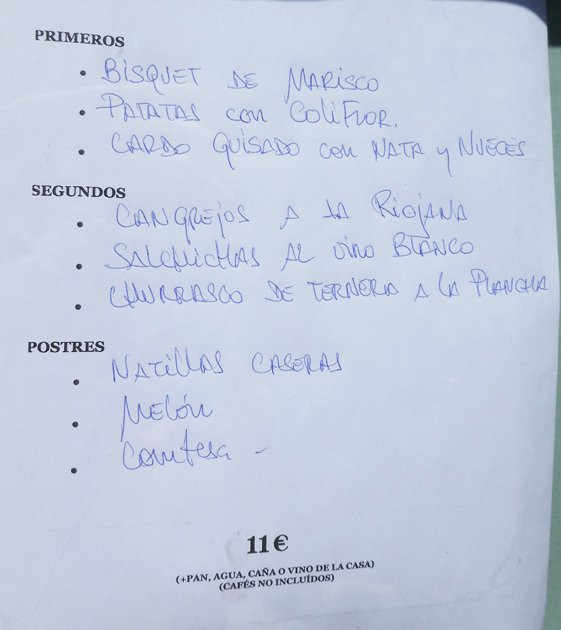 PRIMEROS
• BISQUET DE MARISCO
• PATATAS con COLIFLOR.
• CARDO GUISADO con NATA y NUECES
SEGUNDOS
• CANGREJOS A LA RIOJANA
• SALCHICHAS AL VINO BLANCO
• CHURRASCO DE TERNERA A LA PLANCHA
POSTRES
• NATILLAS CASERAS
• MELÓN
• Comtesa -
11 €
(+PAN, AGUA, CAÑA O VINO DE LA CASA)
(CAFÉS NO INCLUÍDOS)